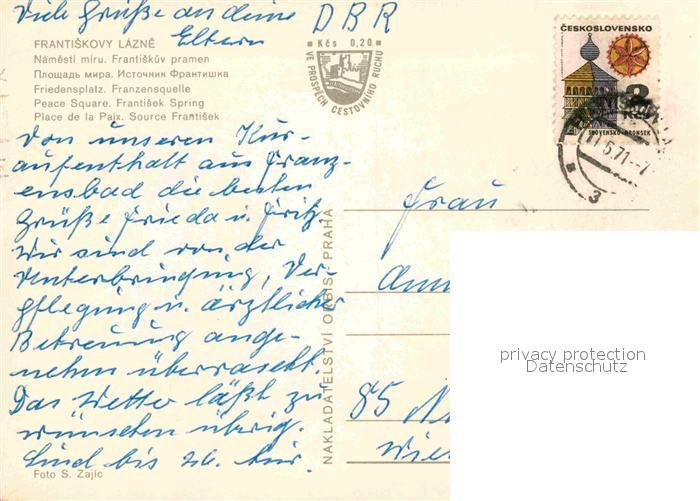 Viele Grüße an deine
Eltern
DBR
FRANTIŠKOVY LÁZNĚ
Náměstí míru. Františkův pramen
Площадь мира. Источник Франтишка
Friedensplatz. Franzensquelle
Peace Square. František Spring
Place de la Paix. Source František
Kčs 0,20
VE PROSPĚCH CESTOVNÍHO RUCHU
ČESKOSLOVENSKO
2
Kčs
SLOVENSKO-HRONSEK
5.71-7
3
Von unseren Kur-
aufenthalt aus Franz-
ensbad die besten
Grüße Frieda u. Fritz.
Wir sind von der
Unterbringung, Ver-
pflegung u. ärztlicher
Betreuung ange-
nehm überrascht.
Das Wetter läßt zu
wünschen übrig.
Sind bis 26. hier.
Foto S. Zajíc
NAKLADATELSTVÍ ORBIS, PRAHA
Frau
85
privacy protection
Datenschutz